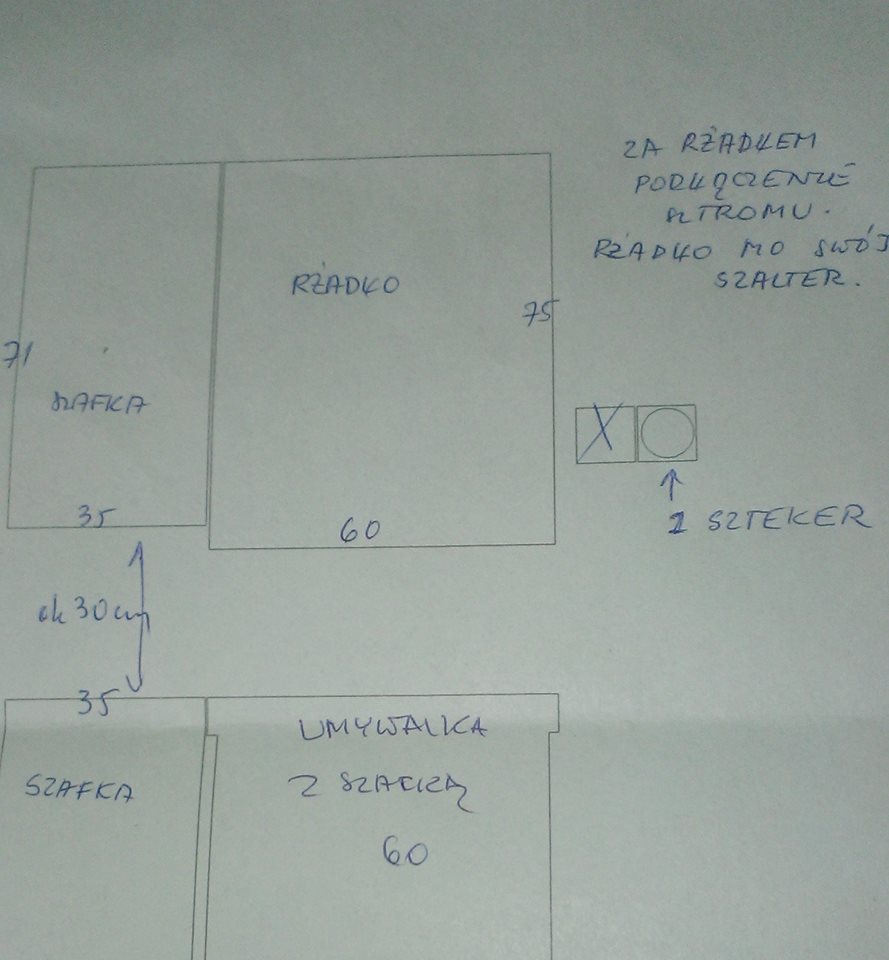 ZA RŻADKEM
PODŁĄCZENIE
SZTROMU.
RŻADKO MO SWÓJ
SZALTER.
RŻADKO
75
71
SZAFKA
35
60
1 SZTEKER
ok 30 cm
35
UMYWALKA
Z SZAFKĄ
SZAFKA
60